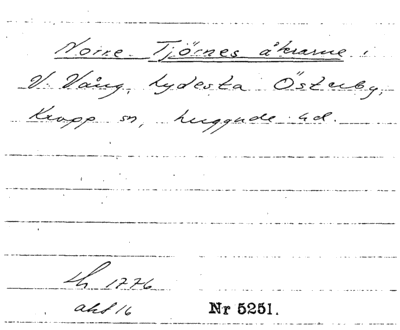 Norre Tjörnes åkrarne i
V. Vång, Lydesta Österby,
Kropp sn, Luggude hd.
Lh 1776
akt 16 Nr 5251.